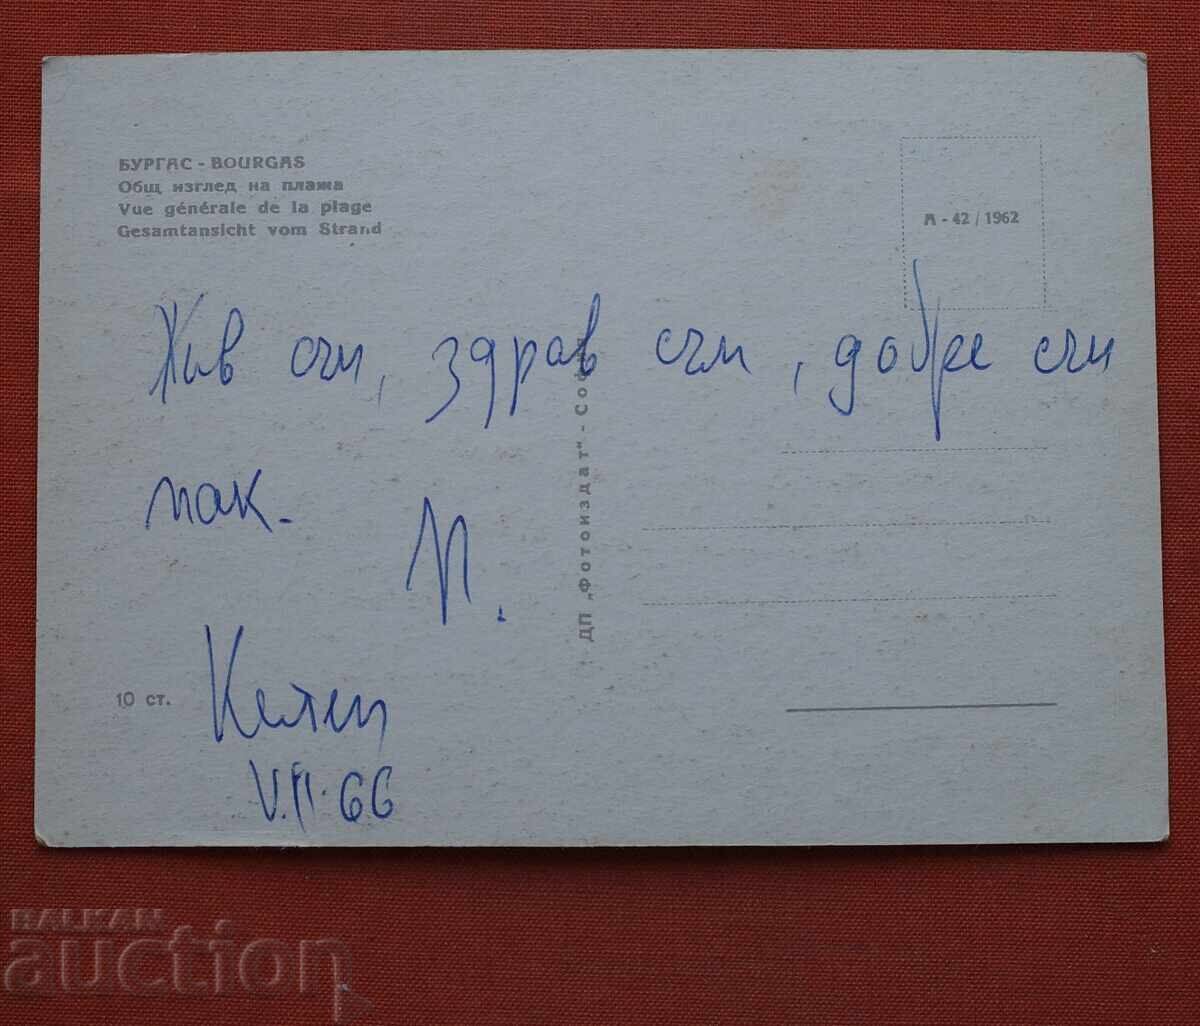 БУРГАС - BOURGAS
Общ изглед на плажа
Vue générale de la plage
Gesamtansicht vom Strand
А - 42 / 1962
Жив съм, здрав съм, добре съм
пак.
П.
ДП „Фотоиздат" - Со
10 ст.
66
BALKAN
auction